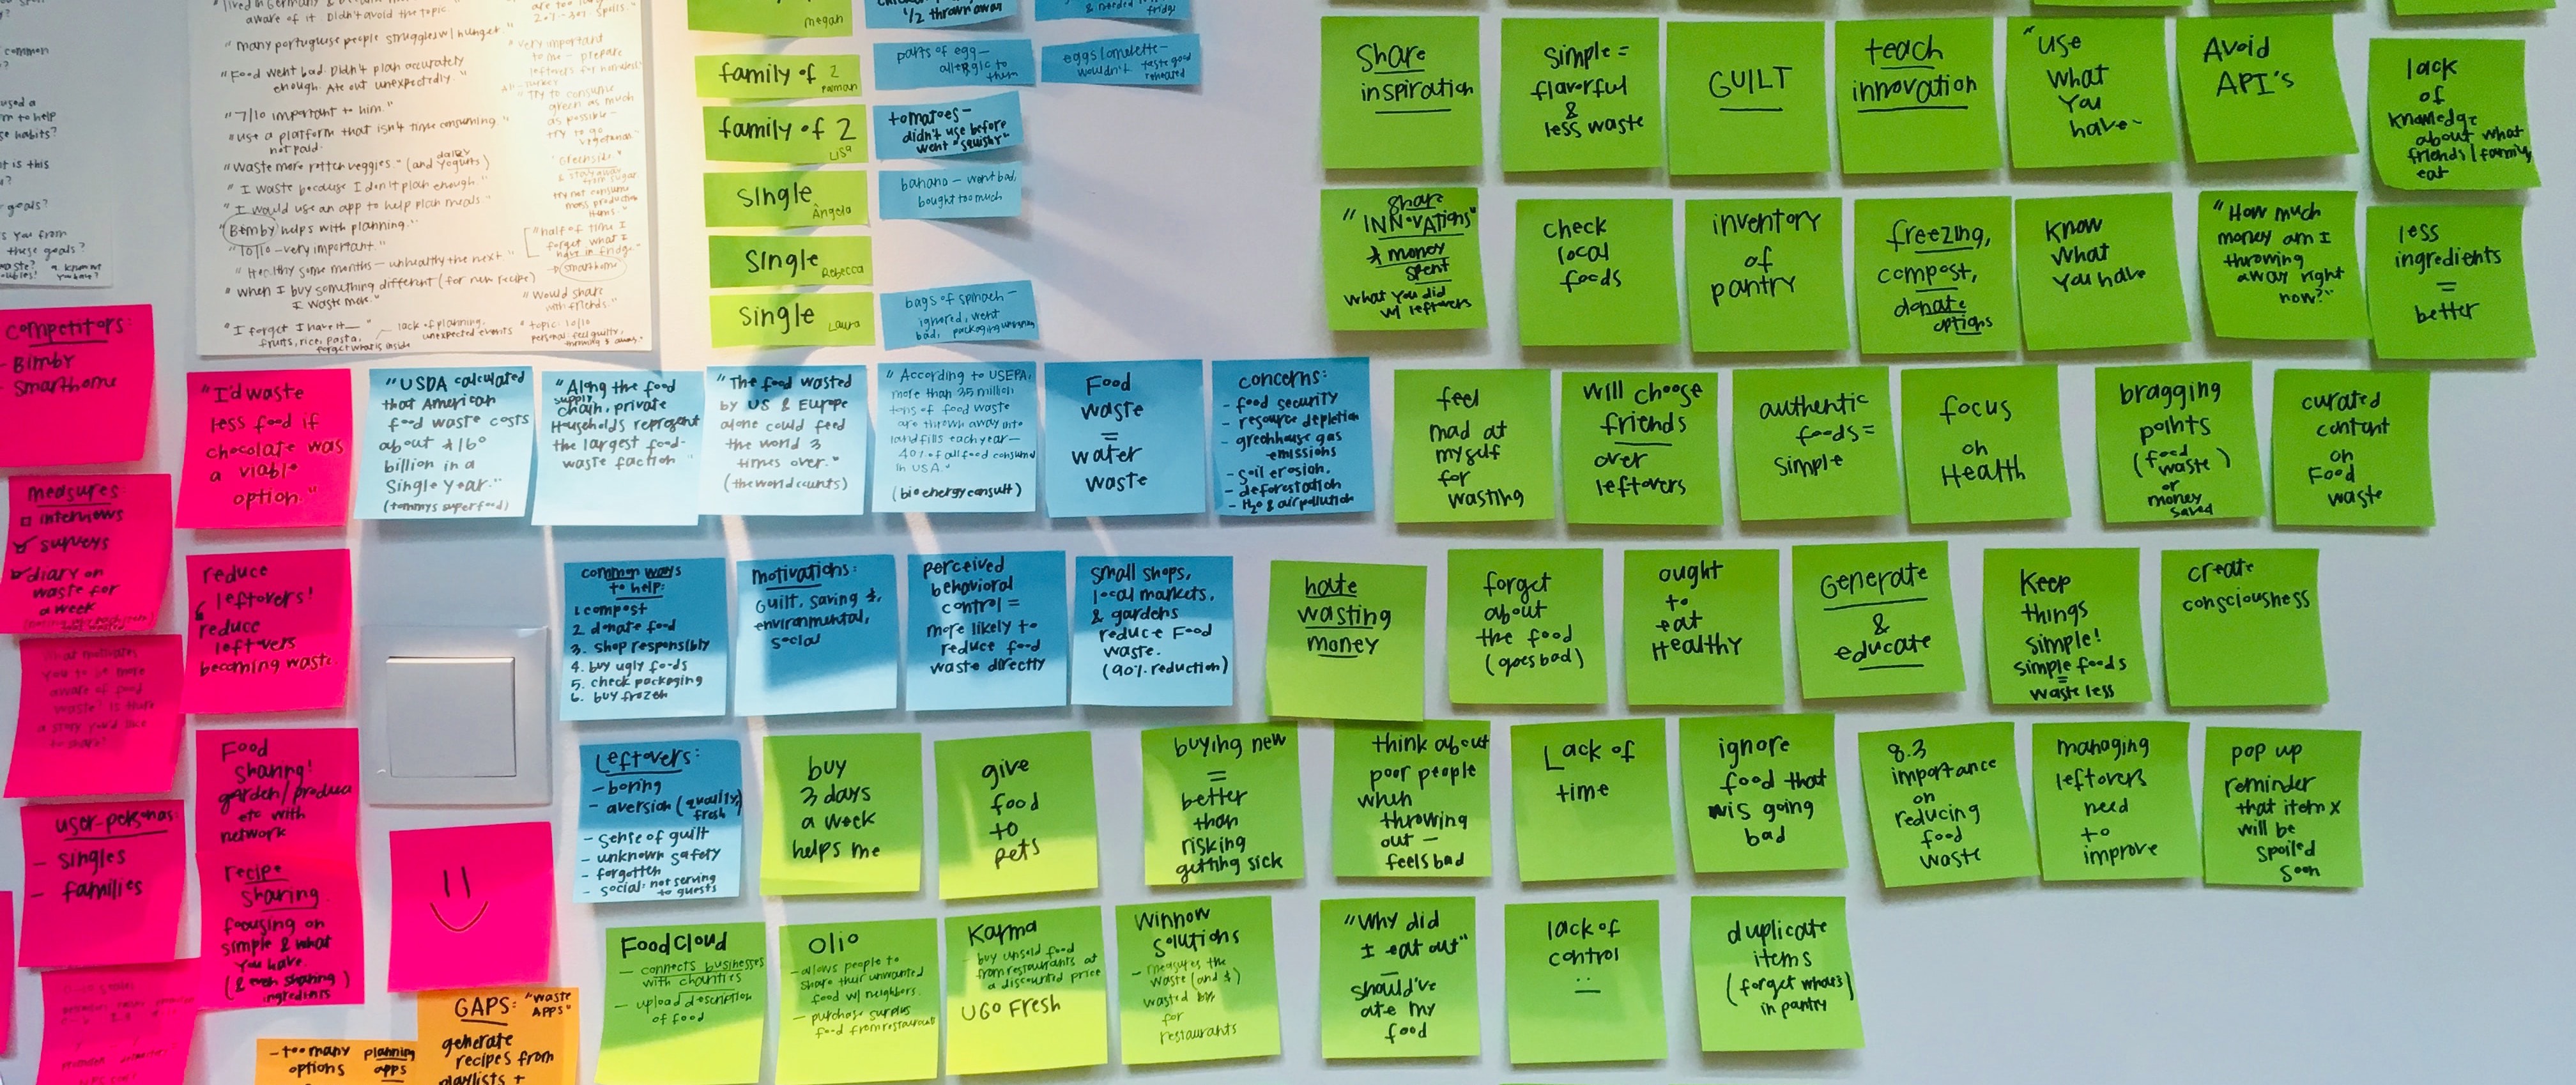 "lived in Germany &
aware of it. Didn't avoid the topic."
"many portuguese people struggle w/ hunger"
"Food went bad. Didn't plan accurately
enough. Ate out unexpectedly."
"7/10 important to him."
"use a platform that isn't time consuming."
not paid.
"waste more rotten veggies" (and dairy yogurts)
"I waste because I don't plan enough."
"I would use an app to help plan meals."
"Bemby helps with planning."
"10/10 - very important."
"Healthy some months - unhealthy the next"
"when I buy something different (for new recipe)
I waste more."
"I forget I have it—"
fruits, rice, pasta,
forget what is inside
lack of planning.
unexpected events
are too long
20% - 30% spoils."
"very important
to me - prepare
leftovers for homeless"
"Try to consume
green as much
as possible -
try to go
vegetarian"
& stay away
from sugar
try not consume
mass production
items."
"half of time I
forget what I
have in fridge"
→ smarthome
"would share
with friends."
"topic: 10/10
personal - feel guilty,
throwing $ away."
common
used a
m to help
se habits?
t is this
goals?
s you from
these goals?
megan
1/2 thrown away
& needed
fridge
family of 2
Raiman
parts of egg—
allergic to
them
eggs/omelette—
wouldn't taste good
reheated
family of 2
Lisa
tomatoes—
didn't use before
went "squishy"
single
Ângela
banana — went bad,
bought too much
single
Rebecca
single
Laura
bags of spinach —
ignored, went
bad, packaging
share
inspiration
simple =
flavorful
&
less waste
GUILT
teach
innovation
"use
what
you
have-
Avoid
API's
lack
of
knowledge
about what
friends/family
eat
share
"INNOVATIONS"
& money
spent
what you did
w/ leftovers
check
local
foods
inventory
of
pantry
freezing,
compost,
donate
options
know
what
you have
"How much
money am I
throwing
away right
now?"
less
ingredients
=
better
competitors:
- Bimby
- smarthome
"I'd waste
less food if
chocolate was
a viable
option."
"USDA calculated
that American
food waste costs
about $160
billion in a
single year."
(tommys superfood)
"Along the food
supply
chain, private
households represent
the largest food-
waste faction"
"The food wasted
by US & Europe
alone could feed
the world 3
times over."
(theworldcounts)
"According to USEPA,
more than 35 million
tons of food waste
are thrown away into
landfills each year—
40% of all food consumed
in USA."
(bioenergyconsult)
Food
waste
=
water
waste
concerns:
- food security
- resource depletion
- greenhouse gas
emissions
- soil erosion.
- deforestation
- H2O & air pollution
feel
mad at
myself
for
wasting
will choose
friends
over
leftovers
authentic
foods =
simple
focus
on
Health
bragging
points
(food
waste)
or
money
saved
curated
content
on
Food
waste
measures:
interviews
surveys
diary on
waste for
a week
reduce
leftovers!
&
reduce
leftovers
becoming waste.
common ways
to help:
1. compost
2. donate food
3. shop responsibly
4. buy ugly foods
5. check packaging
6. buy frozen
motivations:
Guilt, saving $,
environmental,
social
perceived
behavioral
control =
more likely to
reduce food
waste directly
small shops,
local markets,
& gardens
reduce Food
waste.
(90% reduction)
hate
wasting
money
forget
about
the food
(goes bad)
ought
to
eat
Healthy
Generate
&
educate
Keep
things
simple!
simple foods
=
waste less
create
consciousness
what motivates
you to be more
aware of food
waste? Is there
a story you'd like
to share?
Food
sharing!
garden/produce
etc with
network
Leftovers:
- boring
- aversion (quality/
fresh)
- sense of guilt
- unknown safety
- forgotten
- social: not serving
to guests
buy
3 days
a week
helps me
give
food
to
pets
buying new
=
better
than
risking
getting sick
think about
poor people
when
throwing
out —
feels bad
Lack of
time
ignore
food that
is going
bad
8.3
importance
on
reducing
food
waste
managing
leftovers
need
to
improve
pop up
reminder
that item x
will be
spoiled
soon
user-personas:
- singles
- families
recipe
sharing
focusing on
simple & what
you have.
(& even sharing)
ingredients
FoodCloud
- connects businesses
with charities
- upload description
of food
Olio
- allows people to
share their unwanted
food w/ neighbors.
- purchase surplus
food from restaurant
Karma
- buy unsold food
from restaurants at
a discounted price
UGO Fresh
Winnow
Solutions
- measures the
waste (and $)
wasted
for
restaurants
"Why did
I eat out"
—
should've
ate my
food
lack of
control
duplicate
items
(forget what's)
in pantry
GAPS: "waste
APPS"
generate
recipes from
playlists +
- too many
options
planning
apps